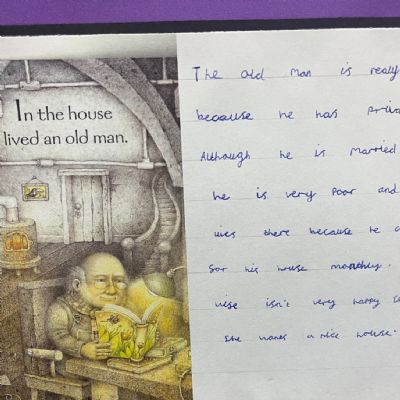 In the house
lived an old man.
The old man is really
because he has
Although he is married
he is very poor and
lives there because he
for his house monthly.
wise isn't very happy
She wants a nice house.